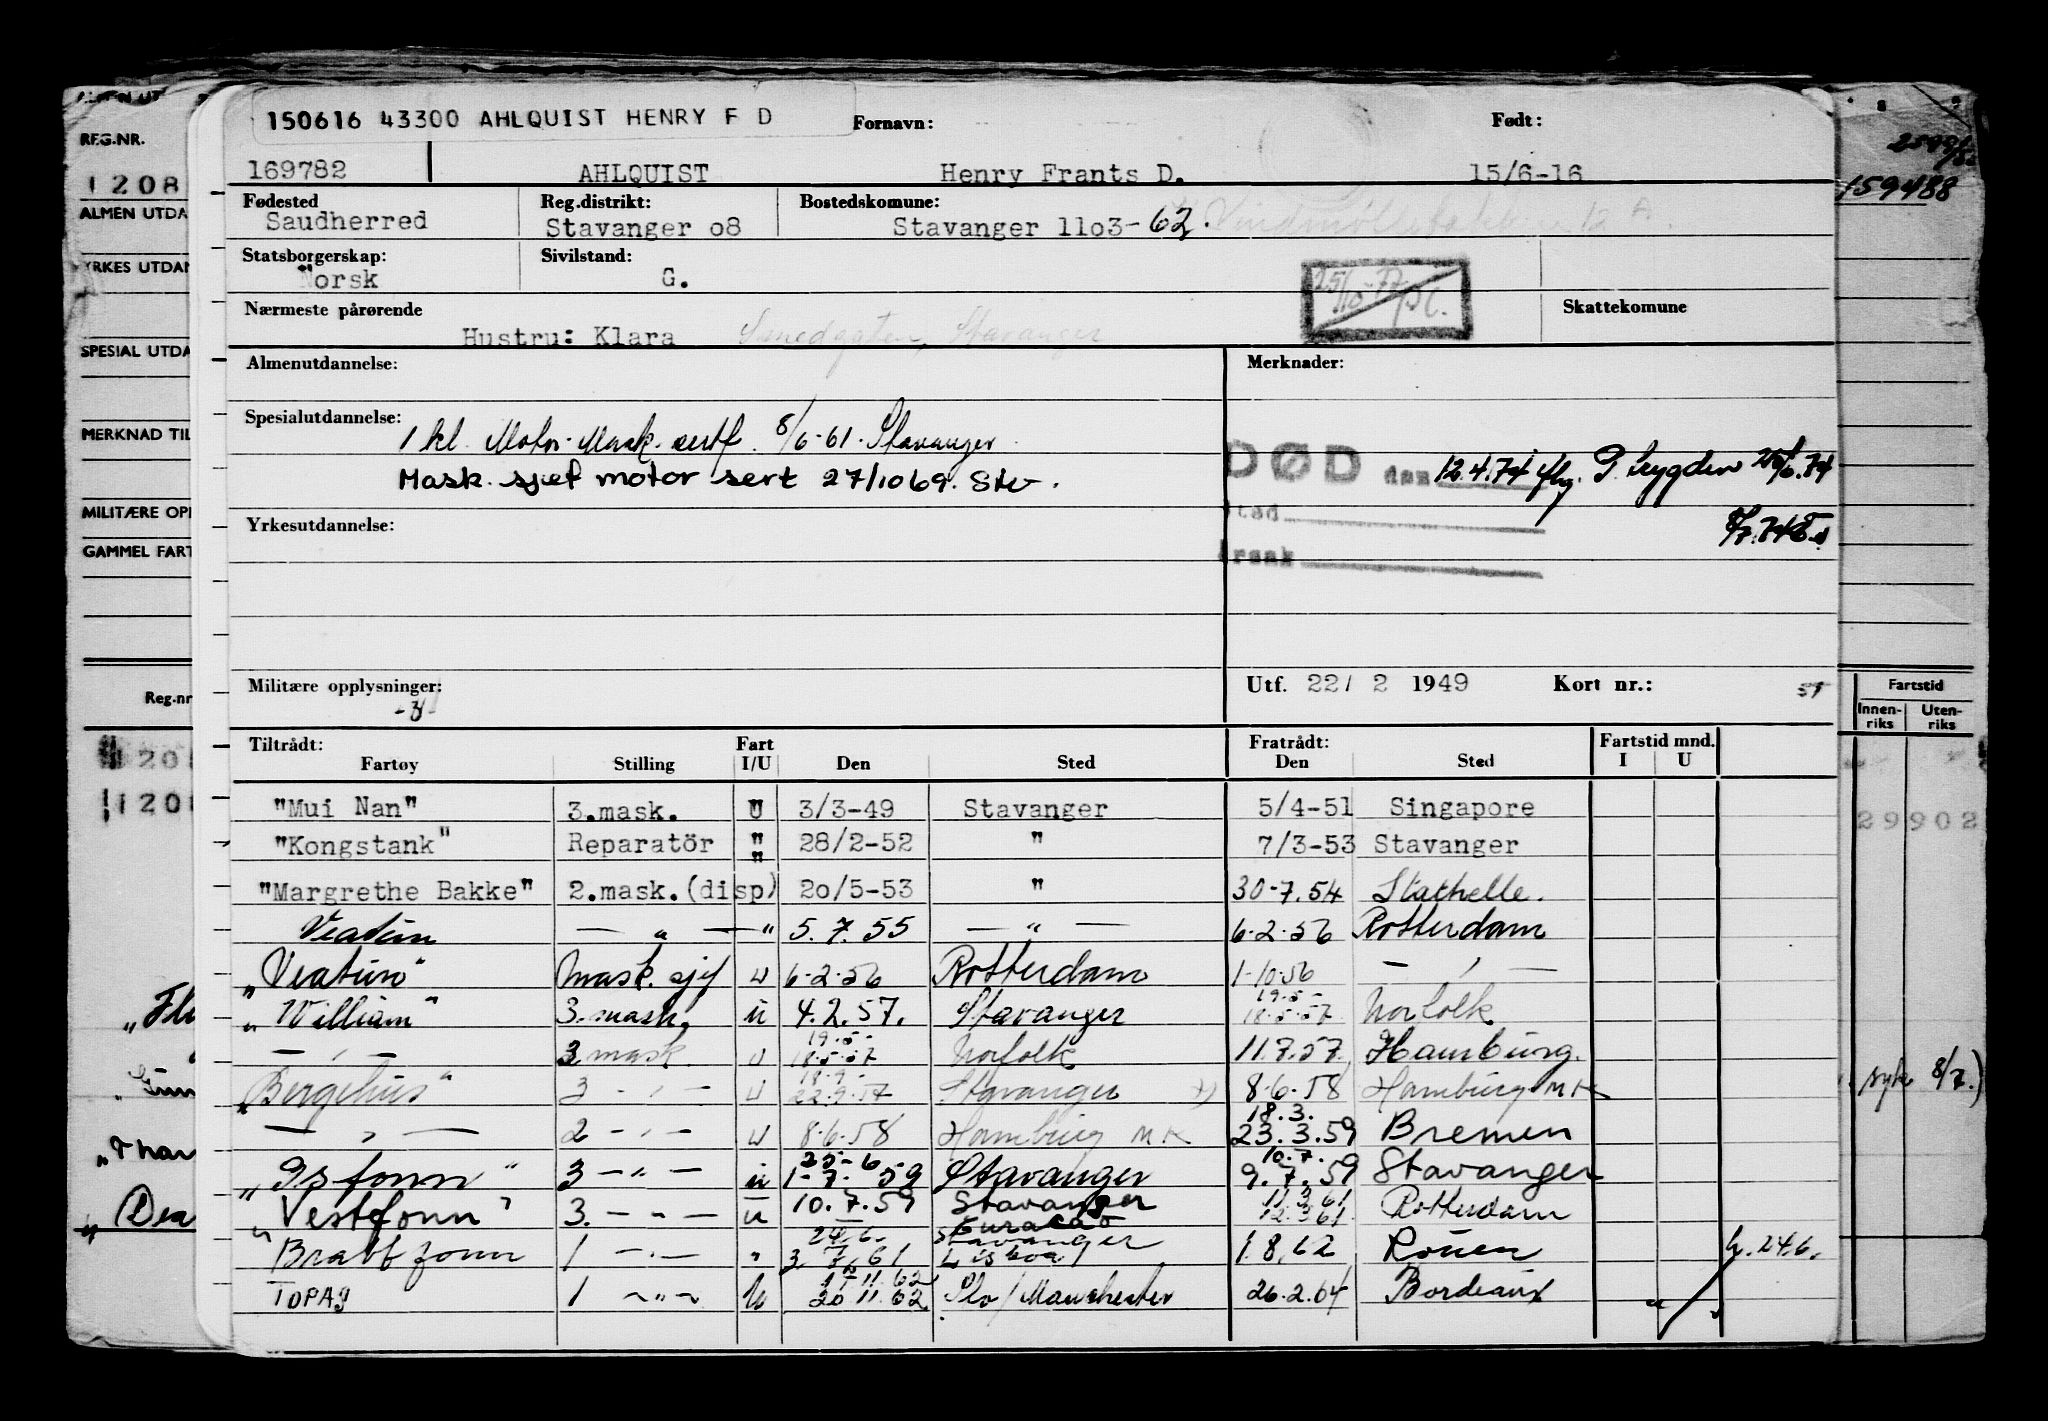 150616 43300 AHLQUIST HENRY F D
Fornavn: Født:
169782 AHLQUIST Henry Frants D. 15/6-16
Fødested Reg.distrikt: Bostedskomune:
Saudherred Stavanger o8 Stavanger 11o3-62.
Statsborgerskap: Sivilstand:
Norsk G.
Nærmeste pårørende Skattekomune
Hustru: Klara Smedgaten, Stavanger
Almenutdannelse: Merknader:
Spesialutdannelse:
1 kl. Motor-Mask. sertf. 8/6-61. Stavanger
Mask. sjef motor sert 27/10 69. Stv.
DØD den 12.4.74 flg. P. trygden
Sted
Årsak
Yrkesutdannelse:
Militære opplysninger: Utf. 22/ 2 1949 Kort nr.:
Tiltrådt: Fart Fratrådt: Fartstid mnd.
Fartøy Stilling I/U Den Sted Den Sted I U
"Mui Nan" 3.mask. U 3/3-49 Stavanger 5/4-51 Singapore
"Kongstank" Reparatör " 28/2-52 " 7/3-53 Stavanger
"Margrethe Bakke" 2.mask.(disp) " 2o/5-53 " 30-7.54 Stathelle.
Veatun — " — " 5.7.55 — " — 6.2.56 Rotterdam
"Veatun" Mask. sjef u 6.2.56 Rotterdam 1-10.56 — " —
"William" 3.mask. u 4.2.57. Stavanger 19.5- 18.5.57 Norfolk
— " — 2 mask u 19.5- 18.5.57 Norfolk 11.7.57. Hamburg.
"Bergehus" 3 — " — u 18.9- 22.9.57 Stavanger 8.6.58 Hamburg MK
— " — 2 — " — u 8.6.58 Hamburg MK 18.3. 23.3.59 Bremen
"Isfonn" 3 — " — u 25-6 1-7.59 Stavanger 10.7. 9.7.59 Stavanger
"Vestfonn" 3. — " — u 10.7.59 Stavanger 11.3.61 12.3.61 Rotterdam
Brattfonn 1 — " — " 24.6. Curacao Stavanger Lisboa 1.8.62 Rouen h. 24.6.
TOPAS 1 — " — u 11.62 20 11.62 Slo / Manchester 26.2.64 Bordeaux
REG.NR.
1208
ALMEN UTDA
YRKES UTDAN
SPESIAL UTDA
MERKNAD TIL
MILITÆRE OPP
GAMMEL FART
Reg.nr
1201
159488
Fartstid
Innen-riks Uten-riks
29902
syk 8/7.)